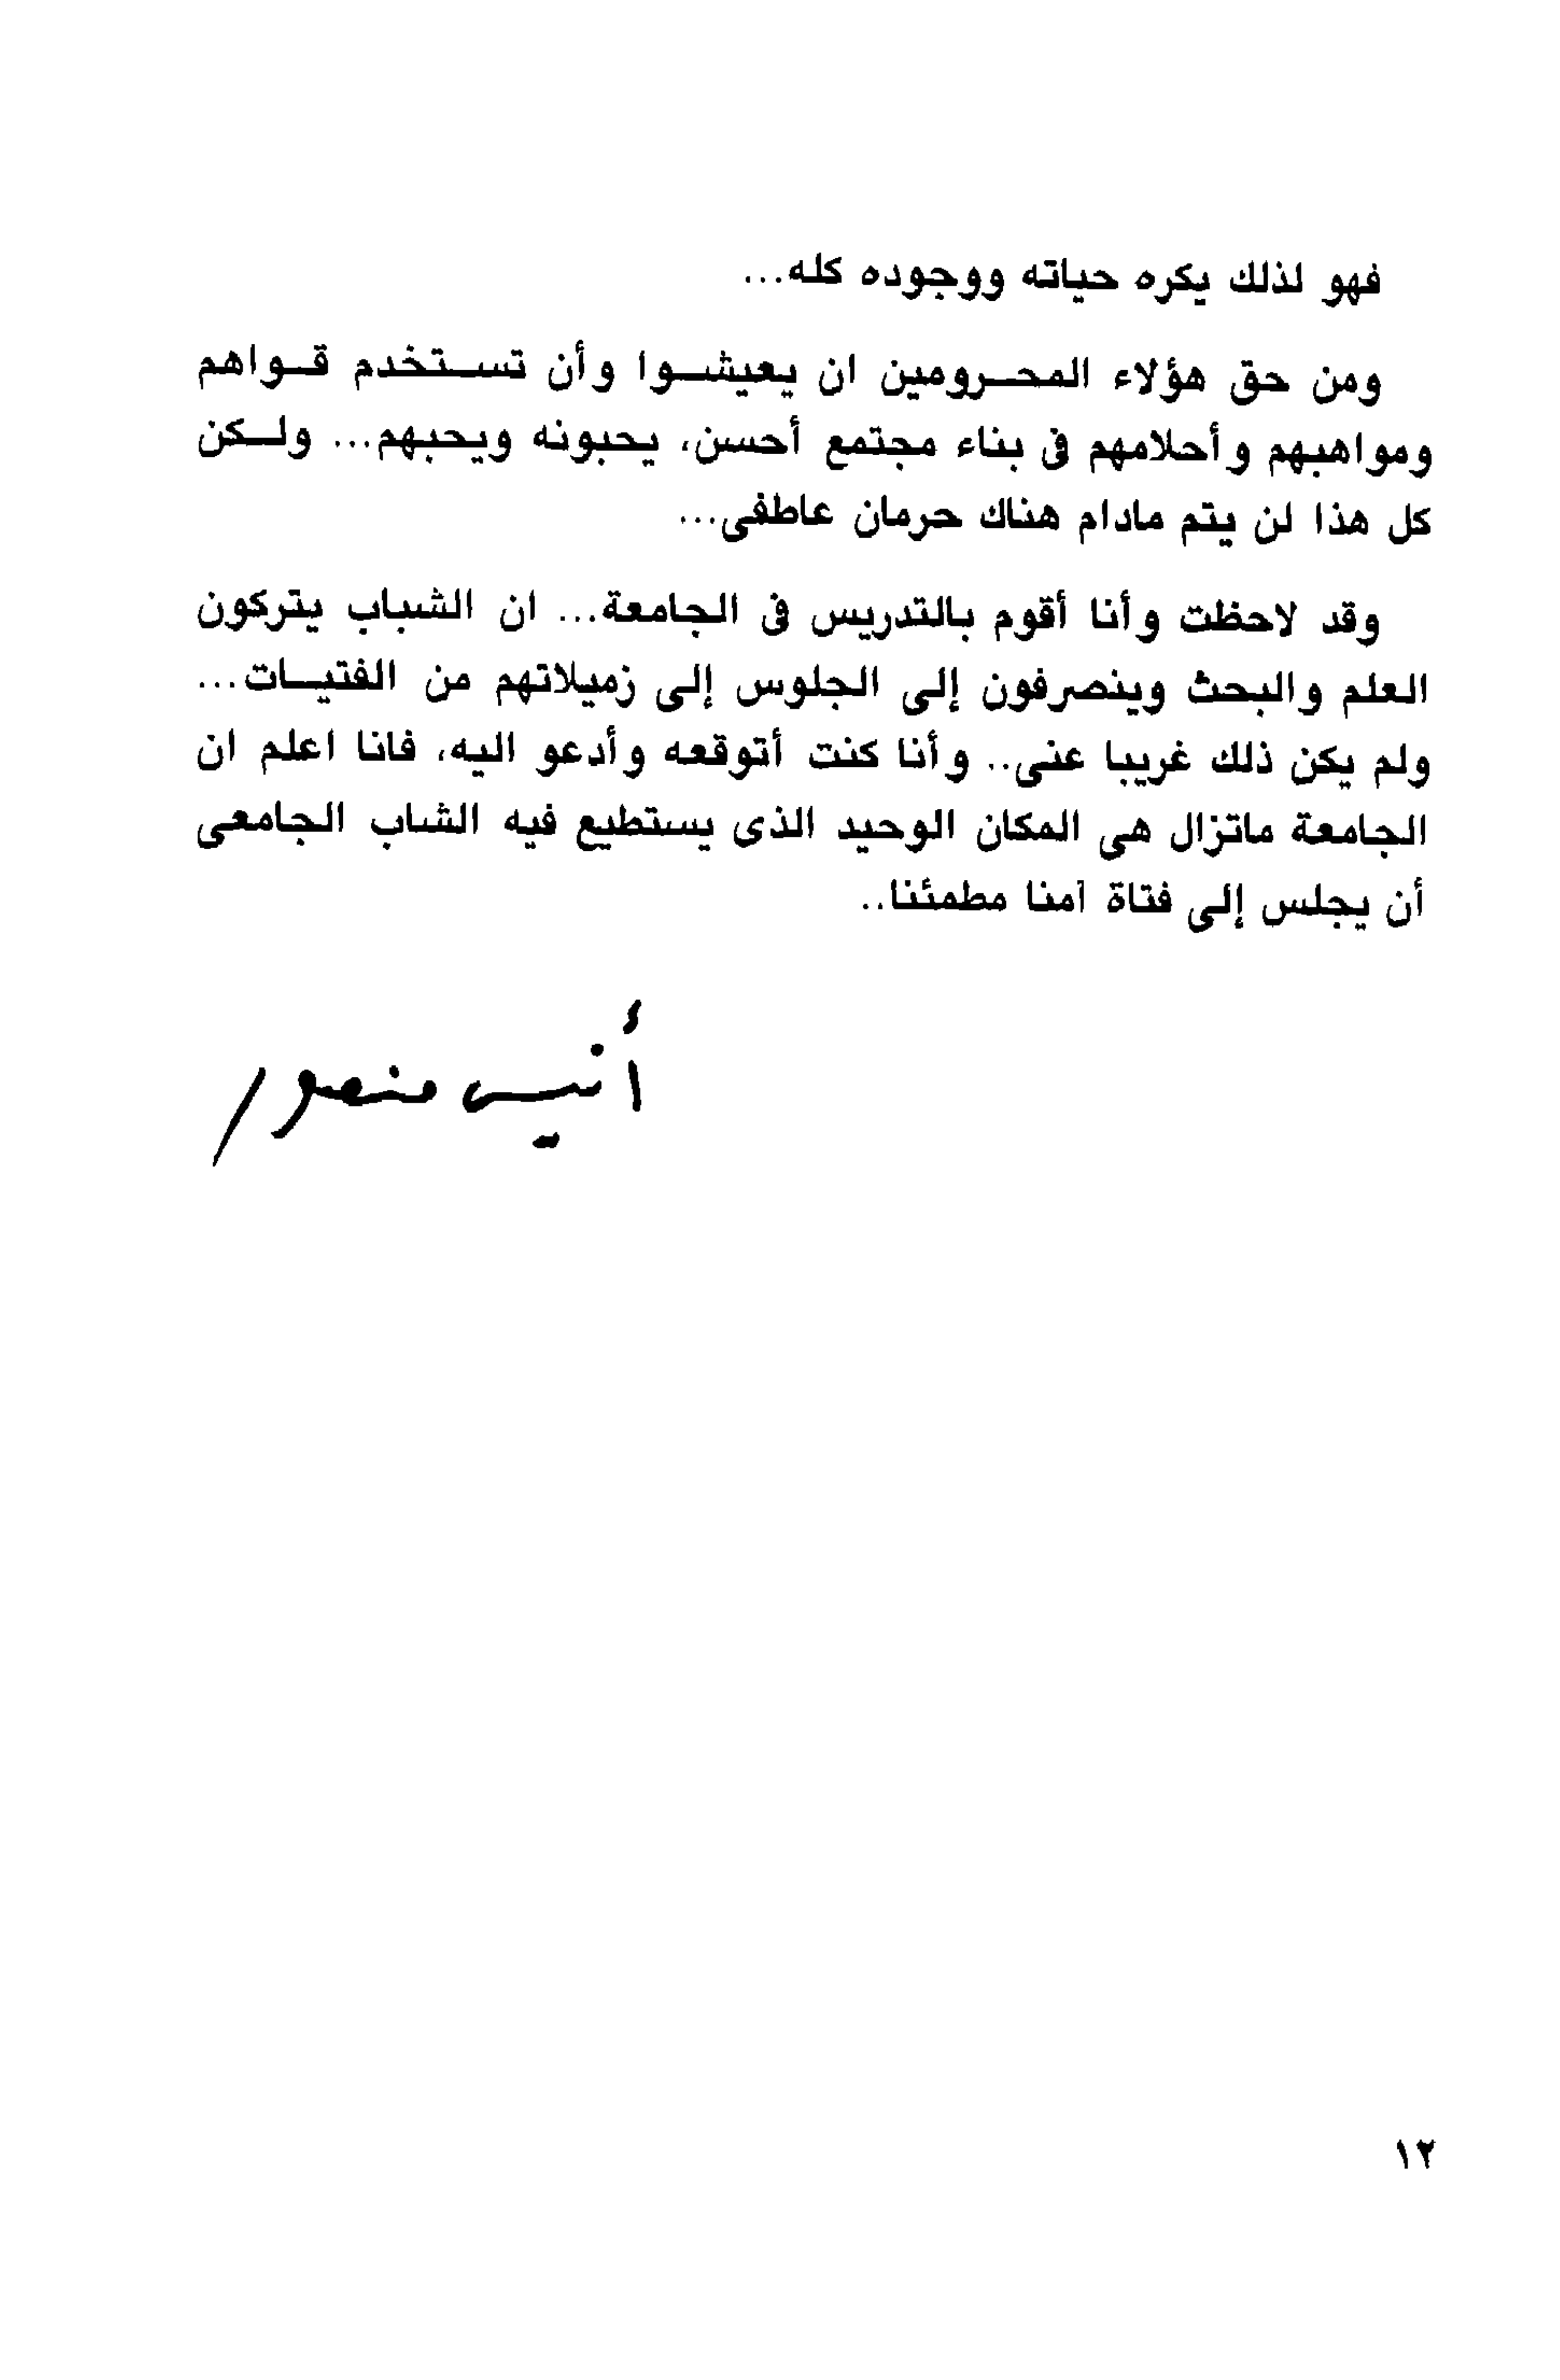 فهو لذلك يكره حياته ووجوده كله...
ومن حق هؤلاء المحرومين ان يعيشوا وأن تستخدم قواهم
ومواهبهم وأحلامهم فى بناء مجتمع أحسن، يحبونه ويحبهم... ولكن
كل هذا لن يتم مادام هناك حرمان عاطفى...
وقد لاحظت وأنا أقوم بالتدريس فى الجامعة... ان الشباب يتركون
العلم والبحث وينصرفون إلى الجلوس إلى زميلاتهم من الفتيات...
ولم يكن ذلك غريبا عنى.. وأنا كنت أتوقعه وأدعو اليه، فانا اعلم ان
الجامعة ماتزال هى المكان الوحيد الذى يستطيع فيه الشاب الجامعى
أن يجلس إلى فتاة آمنا مطمئنا..
أنيس منصور
١٢